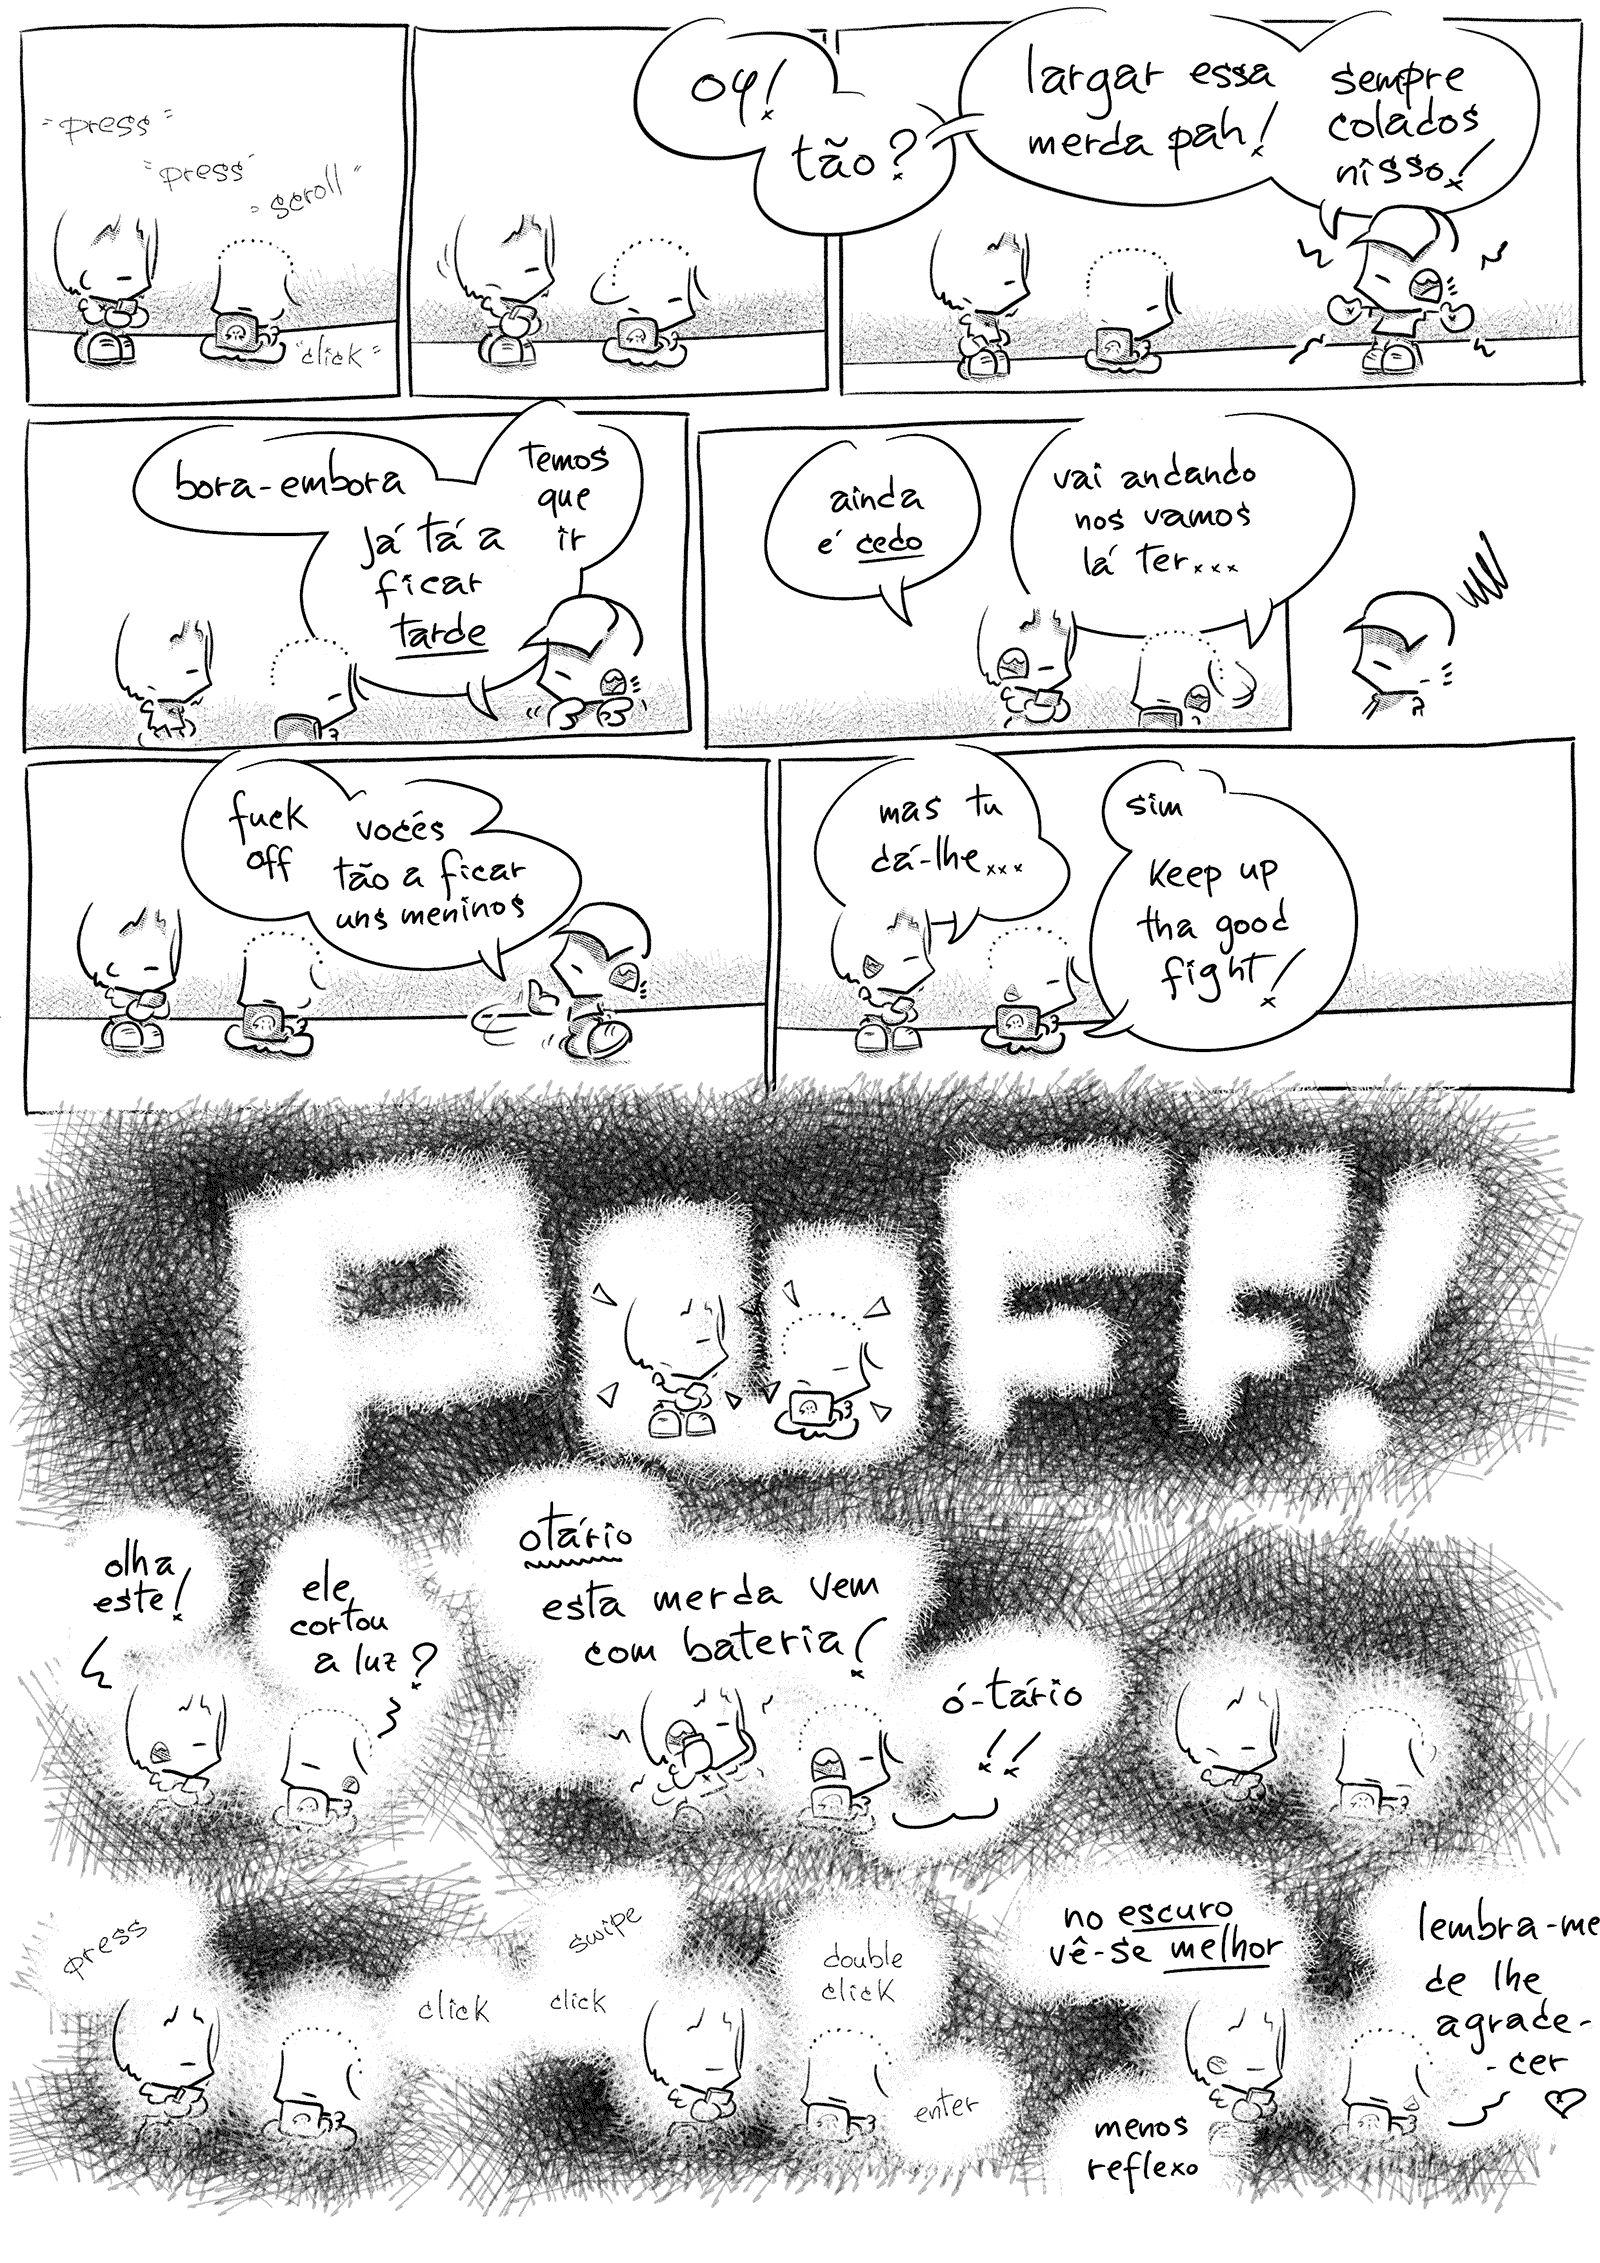 "press"
"press"
"scroll"
"click"
oy!
tão?
largar essa
merda pah!
sempre
colados
nisso!
bora-embora
já tá a
ficar
tarde
temos
que
ir
ainda
é cedo
vai andando
nos vamos
lá ter...
fuck
off
vocés
tão a ficar
uns meninos
mas tu
dá-lhe...
sim
keep up
tha good
fight!
PUFF!
olha
este!
ele
cortou
a luz?
otário
esta merda vem
com bateria!
ó-tário
!!
press
click
swipe
click
double
click
enter
no escuro
vê-se melhor
menos
reflexo
lembra-me
de lhe
agrade-
-cer